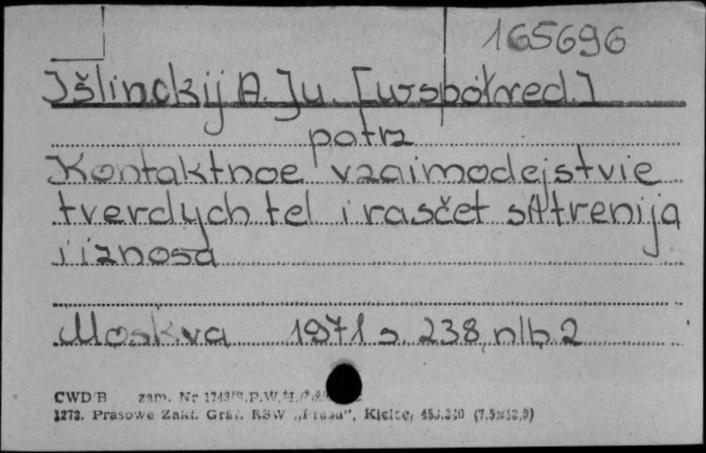 165696
Išlinckij A. Ju. [współred.]
patrz
Kontaktnoe vzaimodejstvie
tverdych tel i rasčet sil trenija
i iznosa
Moskva 1971 s. 238, nlb. 2
CWD/B zam. Nr
1272. Prasowe Zakł. Graf. RSW „Prasa", Kielce,